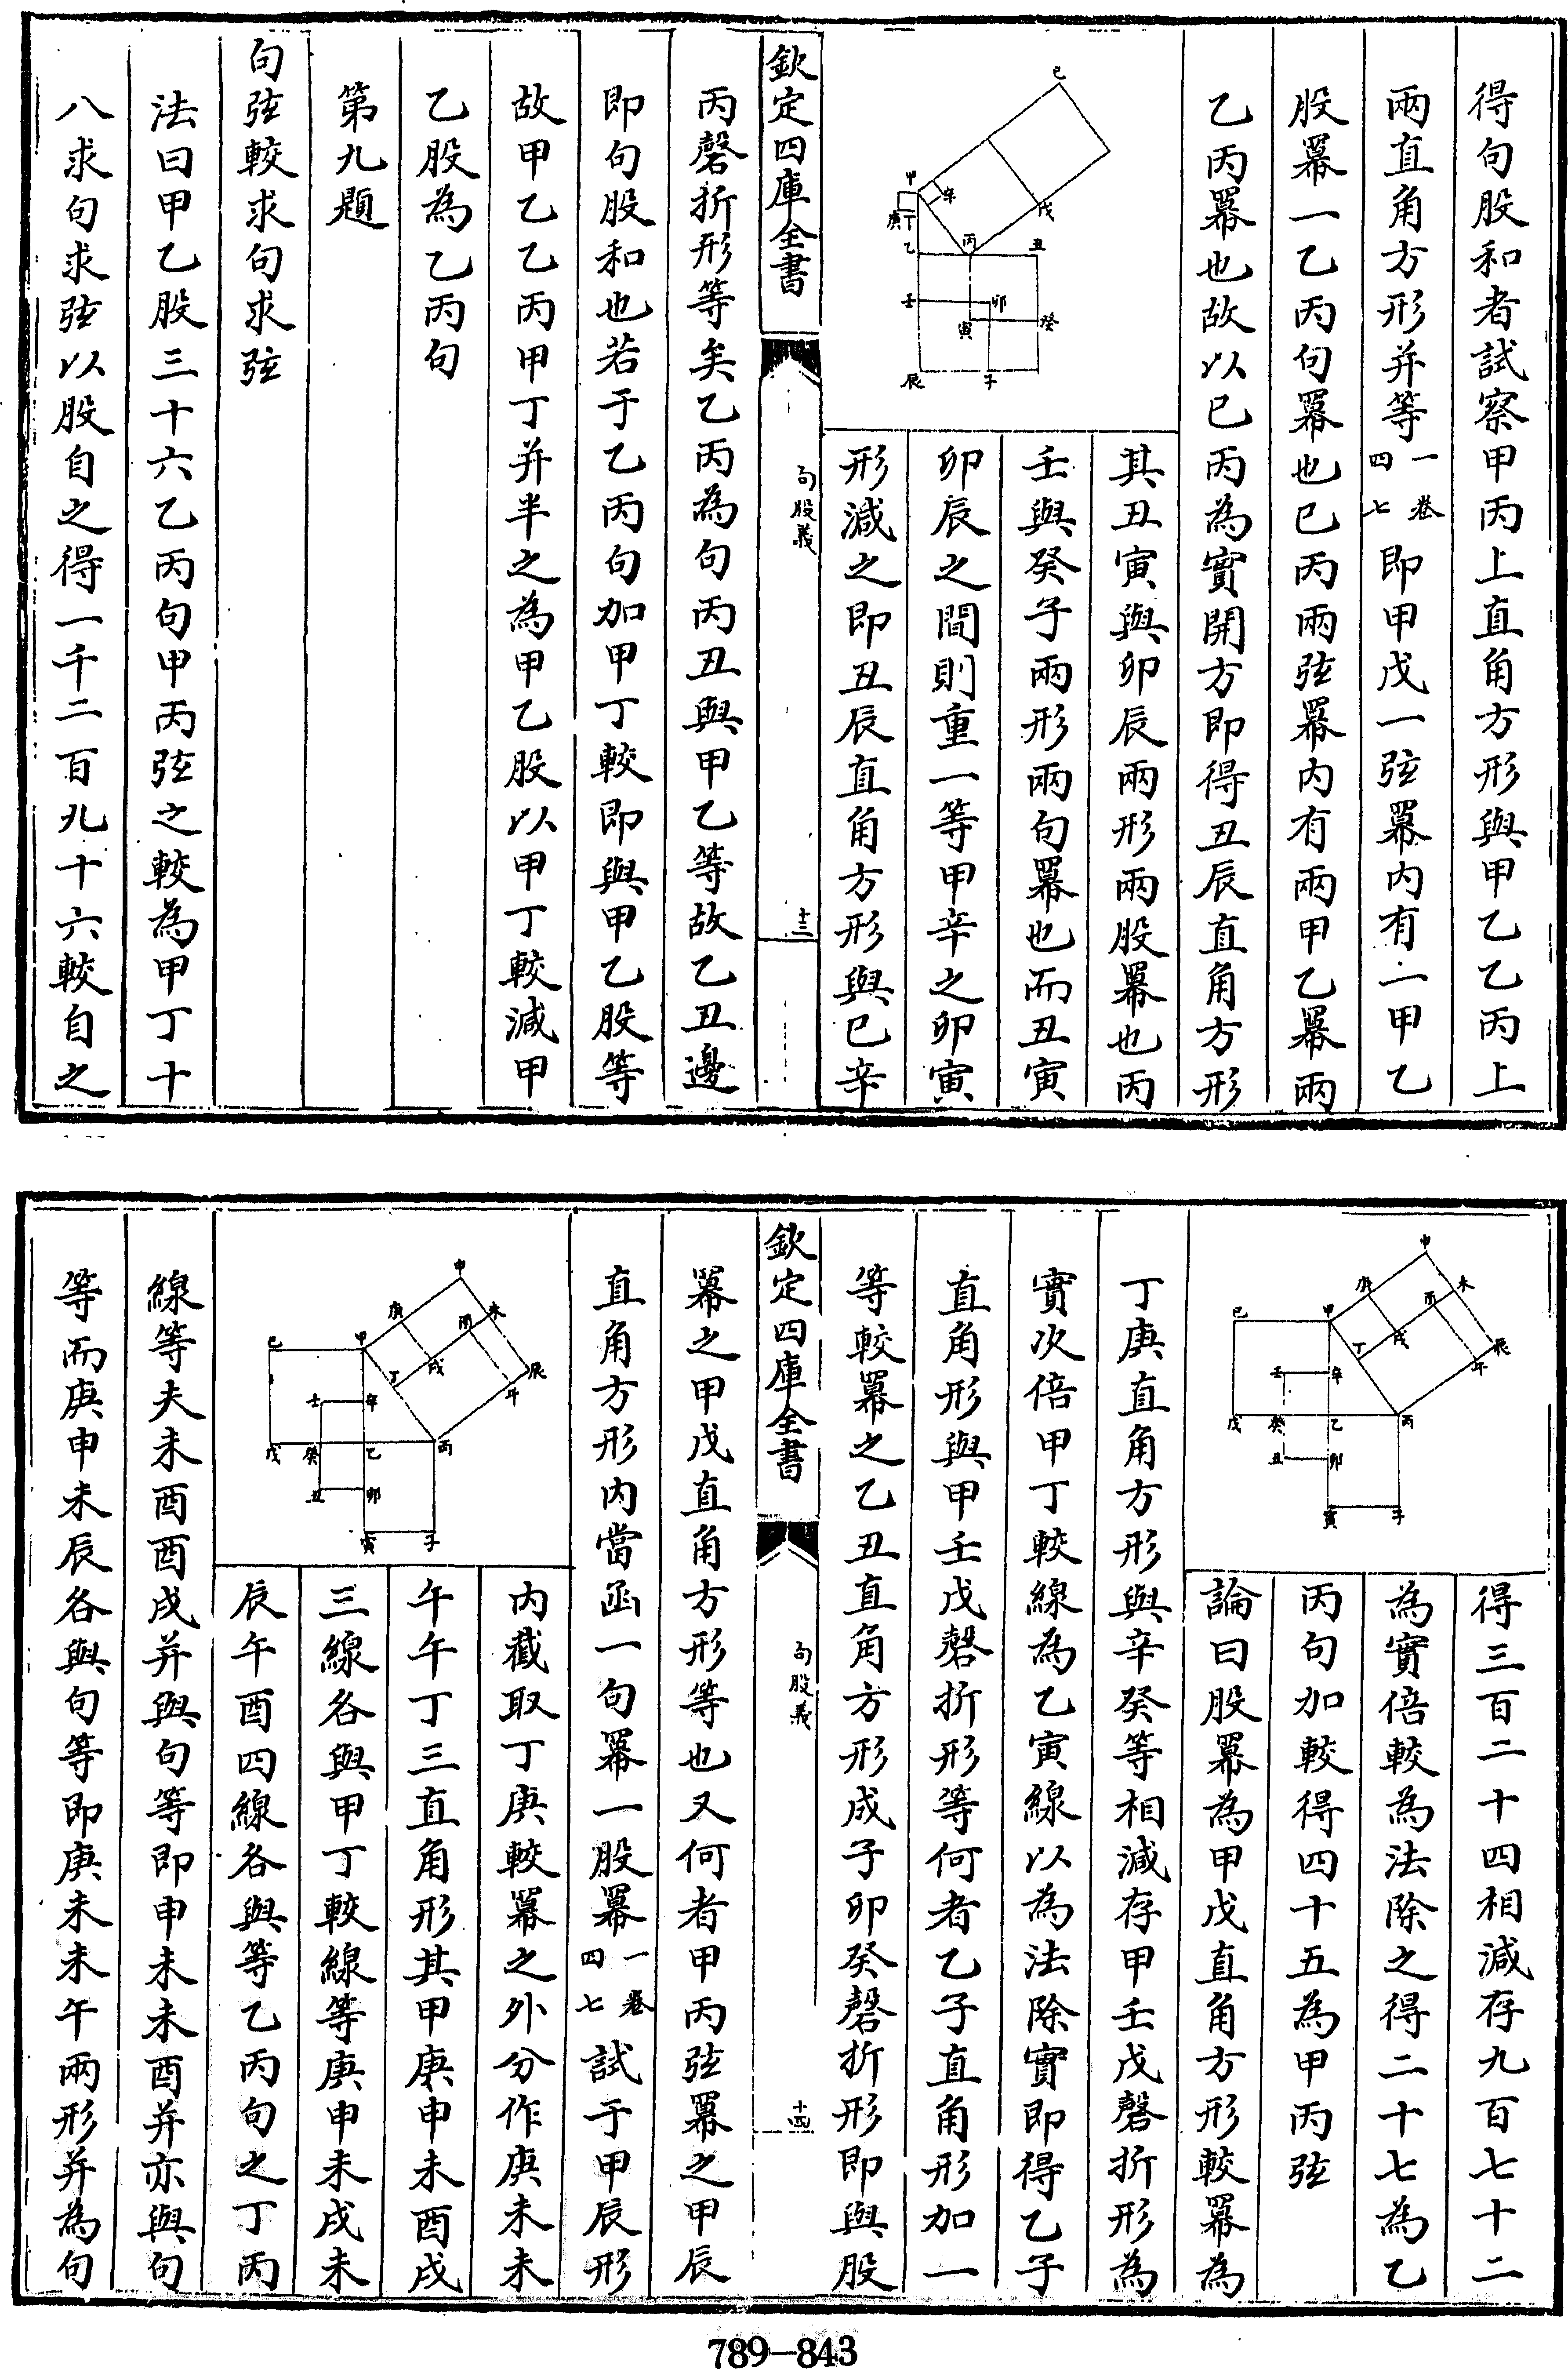 得句股和者試察甲丙上直角方形與甲乙乙丙上
兩直角方形并等一卷四七即甲戊一弦羃内有一甲乙
股羃一乙丙句羃也已丙兩弦羃内有兩甲乙羃兩
乙丙羃也故以已丙為實開方即得丑辰直角方形
己
甲
辛
戊
庚
丁
乙
丙
丑
壬
卯
寅
癸
辰
子
其丑寅與卯辰兩形兩股羃也丙
壬與癸子兩形兩句羃也而丑寅
卯辰之間則重一等甲辛之卯寅
形減之即丑辰直角方形與已辛
欽定四庫全書
句股義
十三
丙磬折形等矣乙丙為句丙丑與甲乙等故乙丑邊
即句股和也若于乙丙句加甲丁較即與甲乙股等
故甲乙乙丙甲丁并半之為甲乙股以甲丁較減甲
乙股為乙丙句
第九題
句弦較求句求弦
法曰甲乙股三十六乙丙句甲丙弦之較為甲丁十
八求句求弦以股自之得一千二百九十六較自之
申
庚
未
酉
己
甲
丁
戌
辰
午
壬
辛
戊
癸
乙
丙
丑
卯
寅
子
得三百二十四相減存九百七十二
為實倍較為法除之得二十七為乙
丙句加較得四十五為甲丙弦
論曰股羃為甲戊直角方形較羃為
丁庚直角方形與辛癸等相減存甲壬戊磬折形為
實次倍甲丁較線為乙寅線以為法除實即得乙子
直角形與甲壬戊磬折形等何者乙子直角形加一
等較羃之乙丑直角方形成子卯癸磬折形即與股
欽定四庫全書
句股義
十四
羃之甲戊直角方形等也又何者甲丙弦羃之甲辰
直角方形内當函一句羃一股羃一卷四七試于甲辰形
申
庚
未
酉
己
甲
丁
戌
辰
午
壬
辛
戊
癸
乙
丙
丑
卯
寅
子
内截取丁庚較羃之外分作庚未未
午午丁三直角形其甲庚申未酉戌
三線各與甲丁較線等庚申未戌未
辰午酉四線各與等乙丙句之丁丙
線等夫未酉酉戌并與句等即申未未酉并亦與句
等而庚申未辰各與句等即庚未未午兩形并為句
789-843